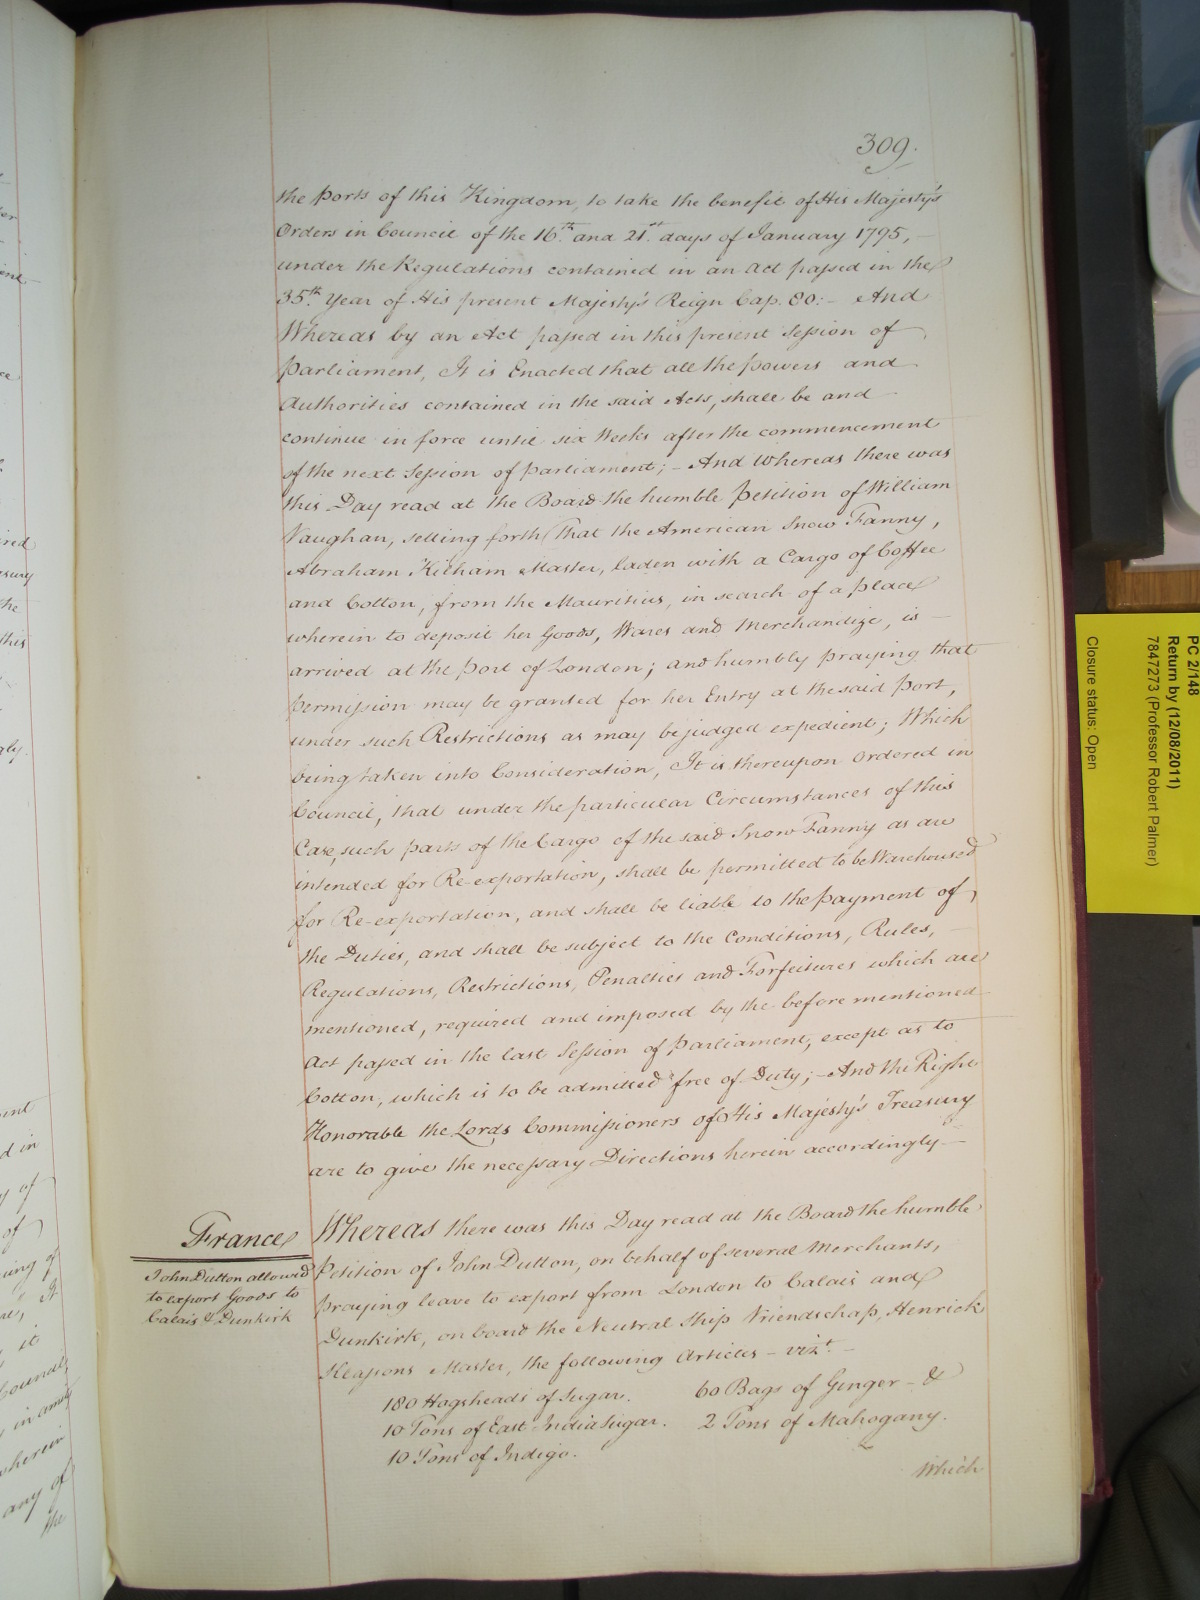 309.
the Ports of this Kingdom, to take the benefit of His Majesty's
Orders in Council of the 16th and 21st days of January 1795,
under the Regulations contained in an Act passed in the
35th Year of His present Majesty's Reign Cap. 80:- And
Whereas by an Act passed in this present Session of
Parliament, It is Enacted that all the powers and
Authorities contained in the said Acts, shall be and
continue in force until six Weeks after the commencement
of the next Session of parliament; - And Whereas there was
this Day read at the Board the humble Petition of William
Vaughan, setting forth That the American Snow Fanny,
Abraham Kitham Master, laden with a Cargo of Coffee
and Cotton, from the Mauritius, in search of a place
wherein to deposit her Goods, Wares and Merchandize, is
arrived at the port of London; and humbly praying that
permission may be granted for her Entry at the said Port,
under such Restrictions as may be judged expedient; Which
being taken into Consideration, It is thereupon Ordered in
Council, that under the particular Circumstances of this
Case, such parts of the Cargo of the said Snow Fanny as are
intended for Re-exportation, shall be permitted to be Warehoused
for Re-exportation, and shall be liable to the payment of
the Duties, and shall be subject to the Conditions, Rules,
Regulations, Restrictions, Penalties and Forfeitures which are
mentioned, required and imposed by the before mentioned
Act passed in the last Session of Parliament, except as to
Cotton, which is to be admitted free of Duty; - And the Right
Honorable the Lords Commissioners of His Majesty's Treasury
are to give the necessary Directions herein accordingly -
France
John Dutton allowed
to export Goods to
Calais & Dunkirk
Whereas there was this Day read at the Board the humble
Petition of John Dutton, on behalf of several Merchants,
praying leave to export from London to Calais and
Dunkirk, on board the Neutral Ship Vriendschap, Henrick
Master, the following Articles - vizt. -
180 Hogsheads of Sugar. 60 Bags of Ginger - &
10 Tons of East India Sugar. 2 Tons of Mahogany.
10 Tons of Indigo.
Which
PC 2/148
Return by (12/08/2011)
7847273 (Professor Robert Palmer)
Closure status: Open